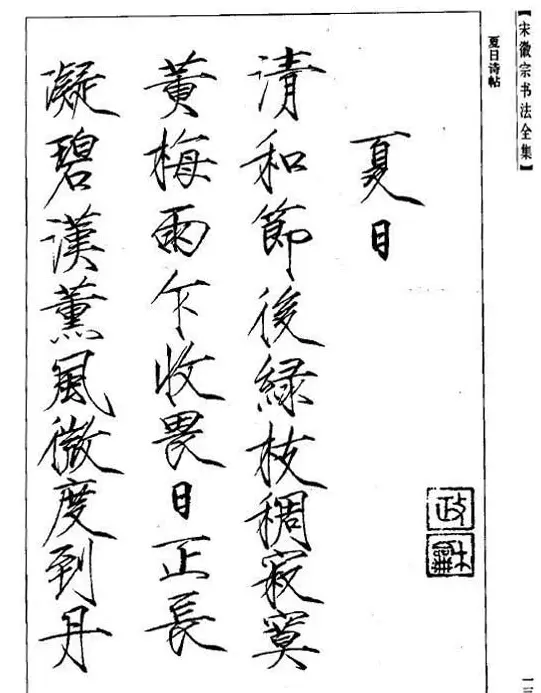 【宋徽宗书法全集】
夏日诗帖
夏日
清和節後綠枝稠寂寞
黃梅雨乍收畏日正長
凝碧漢薰風微度到丹
政和
一三